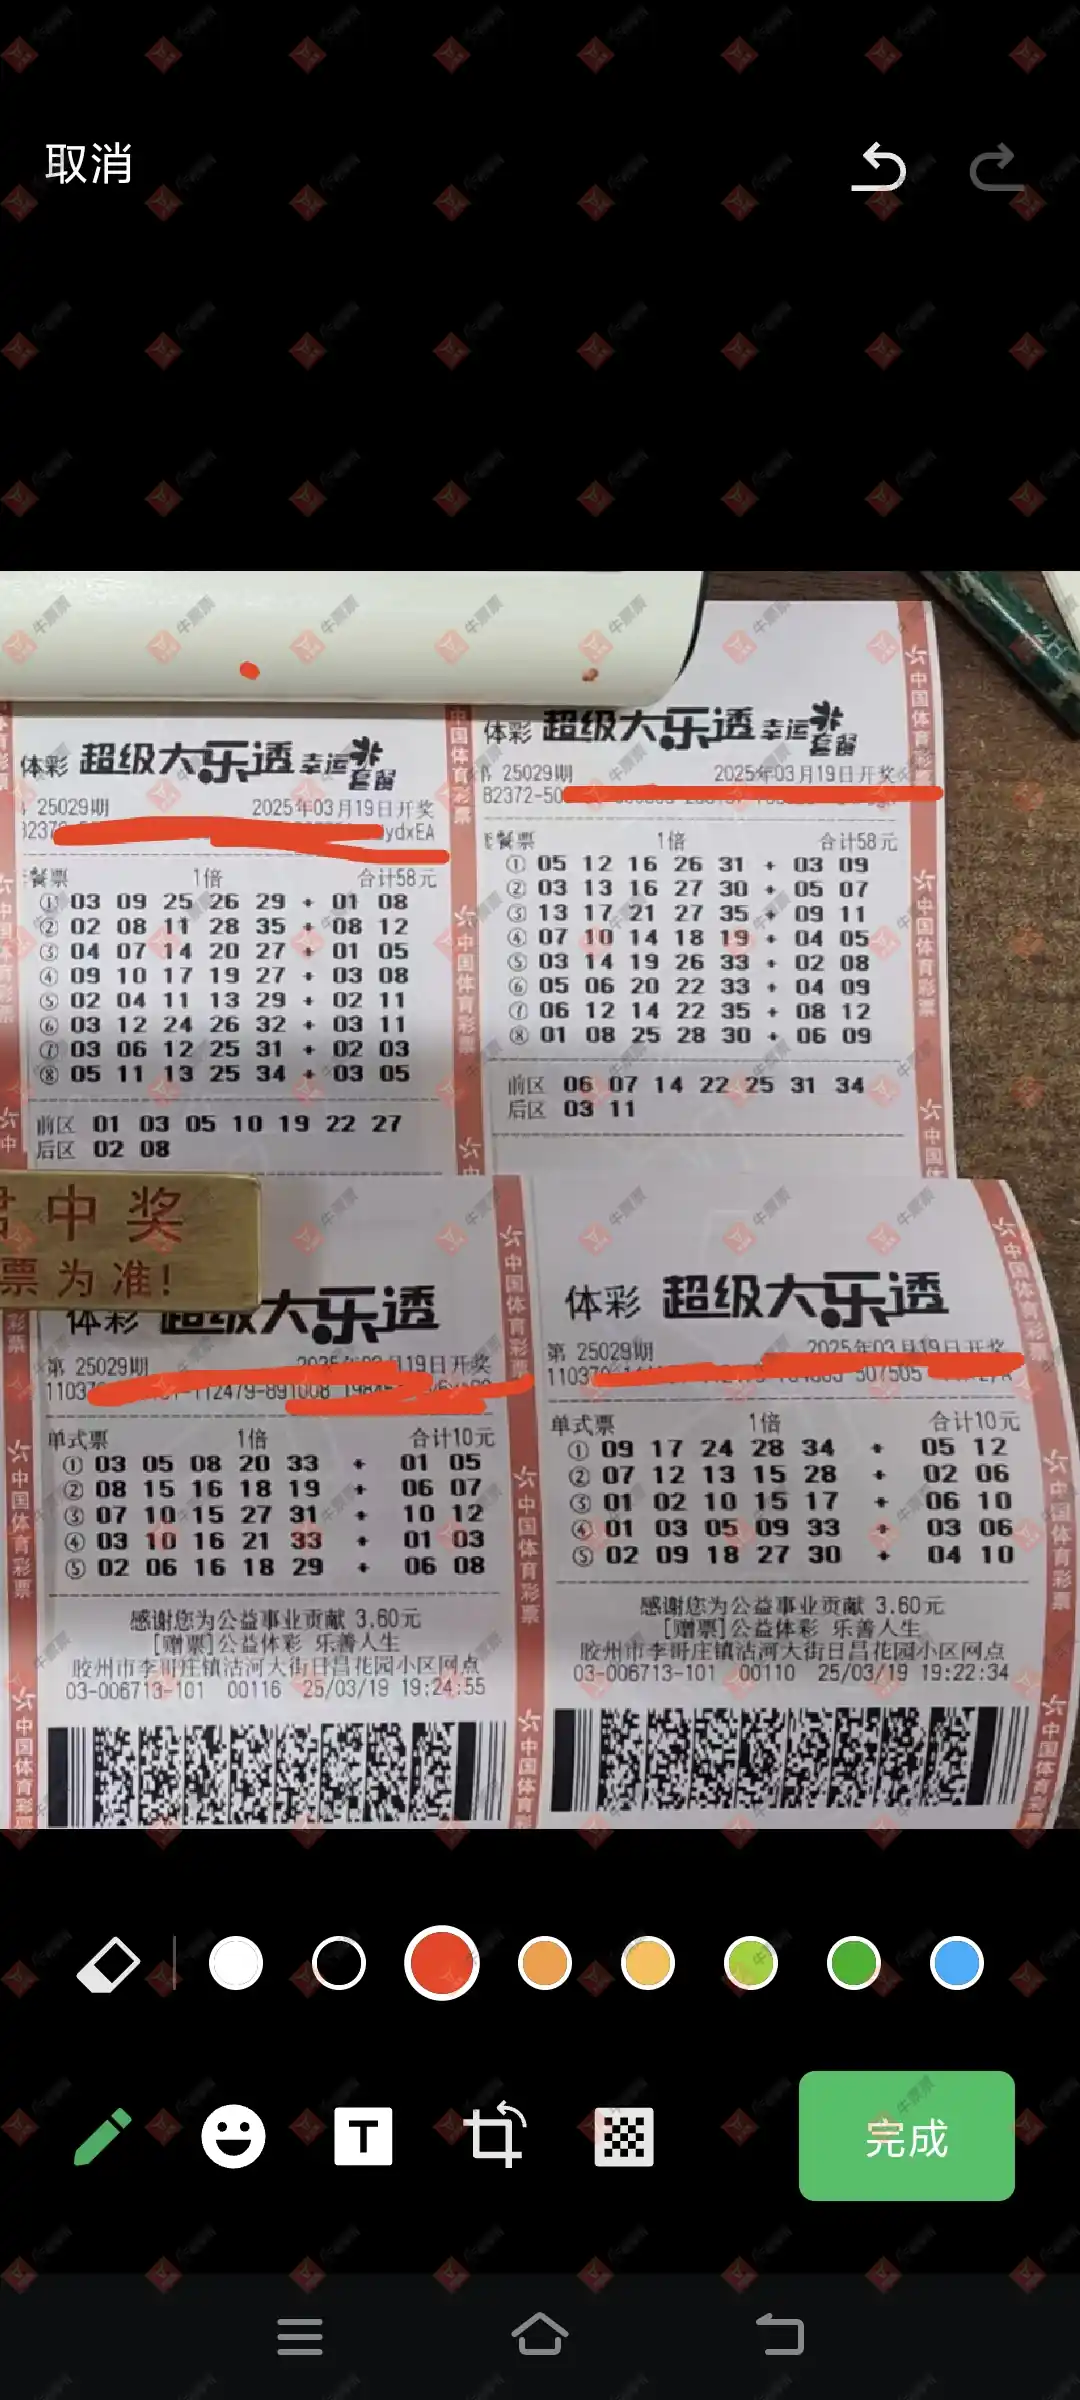 取消
体彩 超级大乐透 幸运套餐
25029期 2025年03月19日开奖
ydxEA
套餐票 1倍 合计58元
① 03 09 25 26 29 + 01 08
② 02 08 11 28 35 + 08 12
③ 04 07 14 20 27 + 01 05
④ 09 10 17 19 27 + 03 08
⑤ 02 04 11 13 29 + 02 11
⑥ 03 12 24 26 32 + 03 11
⑦ 03 06 12 25 31 + 02 03
⑧ 05 11 13 25 34 + 03 05
前区 01 03 05 10 19 22 27
后区 02 08
体彩 超级大乐透 幸运套餐
25029期 2025年03月19日开奖
82372-50
套餐票 1倍 合计58元
① 05 12 16 26 31 + 03 09
② 03 13 16 27 30 + 05 07
③ 13 17 21 27 35 + 09 11
④ 07 10 14 18 19 + 04 05
⑤ 03 14 19 26 33 + 02 08
⑥ 05 06 20 22 33 + 04 09
⑦ 06 12 14 22 35 + 08 12
⑧ 01 08 25 28 30 + 06 09
前区 06 07 14 22 25 31 34
后区 03 11
中奖
票为准!
体彩 超级大乐透
第 25029期 2025年03月19日开奖
11037 -112479-891008
单式票 1倍 合计10元
① 03 05 08 20 33 + 01 05
② 08 15 16 18 19 + 06 07
③ 07 10 15 27 31 + 10 12
④ 03 10 16 21 33 + 01 03
⑤ 02 06 16 18 29 + 06 08
感谢您为公益事业贡献 3.60元
[赠票]公益体彩 乐善人生
胶州市李哥庄镇沽河大街日昌花园小区网点
03-006713-101 00116 25/03/19 19:24:55
体彩 超级大乐透
第 25029期 2025年03月19日开奖
11037 507505
单式票 1倍 合计10元
① 09 17 24 28 34 + 05 12
② 07 12 13 15 28 + 02 06
③ 01 02 10 15 17 + 06 10
④ 01 03 05 09 33 + 03 06
⑤ 02 09 18 27 30 + 04 10
感谢您为公益事业贡献 3.60元
[赠票]公益体彩 乐善人生
胶州市李哥庄镇沽河大街日昌花园小区网点
03-006713-101 00110 25/03/19 19:22:34
中国体育彩票
2H
牛票票
T
完成